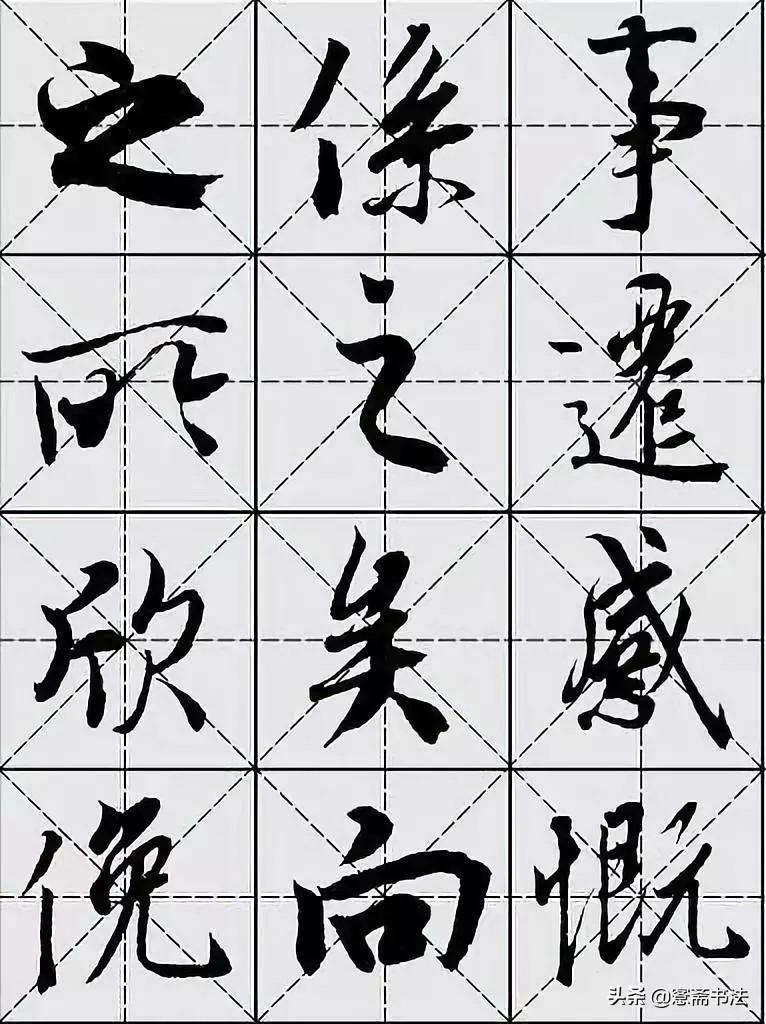 事遷感慨
係之矣向
之所欣俛
头条 @窓斋书法